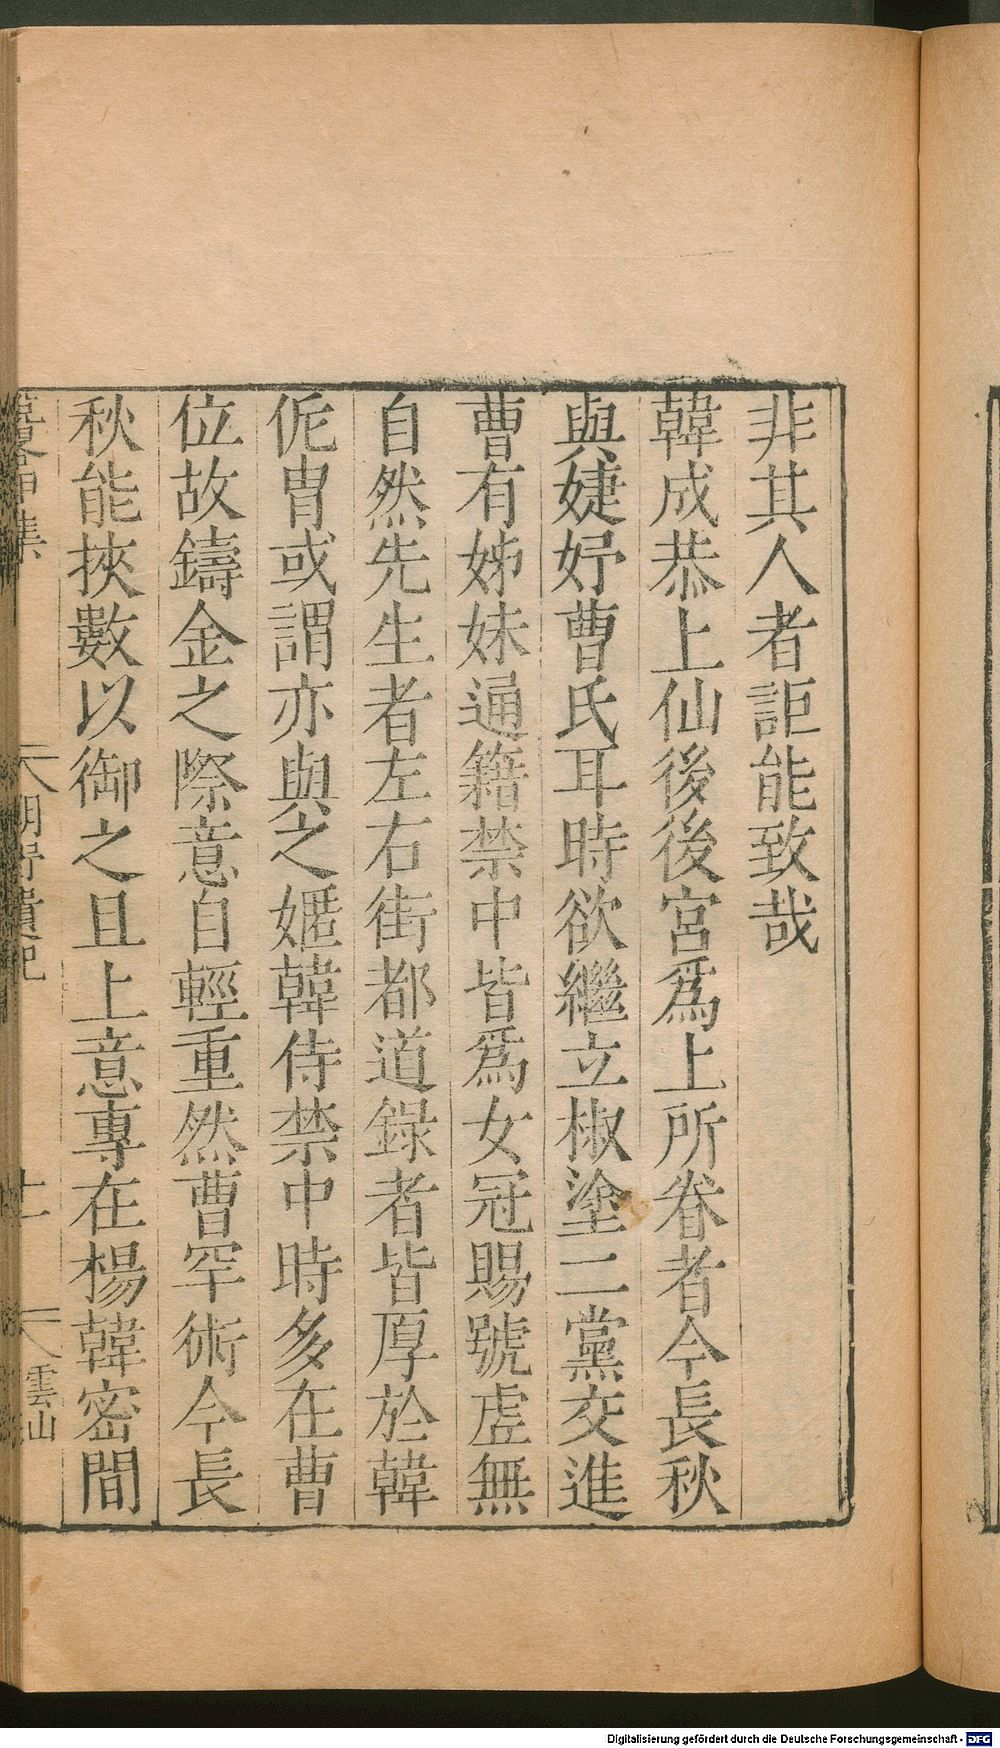 非其人者詎能致哉
韓成恭上仙後後宮爲上所眷者今長秋
與婕妤曹氏耳時欲繼立椒塗二黨交進
曹有姊妹通籍禁中皆爲女冠賜號虛無
自然先生者左右街都道錄者皆厚於韓
伲胄或謂亦與之嫟韓侍禁中時多在曹
位故鑄金之際意自輕重然曹罕術今長
秋能挾數以御之且上意專在楊韓密間
集
雲山
Digitalisierung gefördert durch die Deutsche Forschungsgemeinschaft - DFG